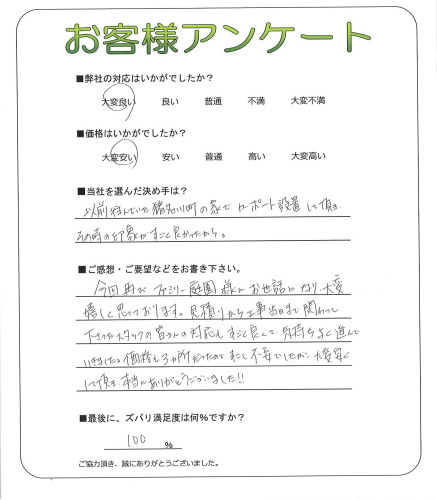 お客様アンケート
■弊社の対応はいかがでしたか？
大変良い 良い 普通 不満 大変不満
■価格はいかがでしたか？
大変安い 安い 普通 高い 大変高い
■当社を選んだ決め手は？
以前住んでいた猪名川町の家でカーポート設置して頂き
その時の印象がすごく良かったから。
■ご感想・ご要望などをお書き下さい。
今回再びファミリー庭園様にお世話になり、大変
嬉しく思っております。見積りから工事当日まで関わって
下さったスタッフの皆さんの対応もすごく良くて、気持ちよく進んで
いきました。価格も3ヵ所だったので少し不安でしたが、大変安く
して頂き、本当にありがとうございました!!
■最後に、ズバリ満足度は何％ですか？
100 %
ご協力頂き、誠にありがとうございました。